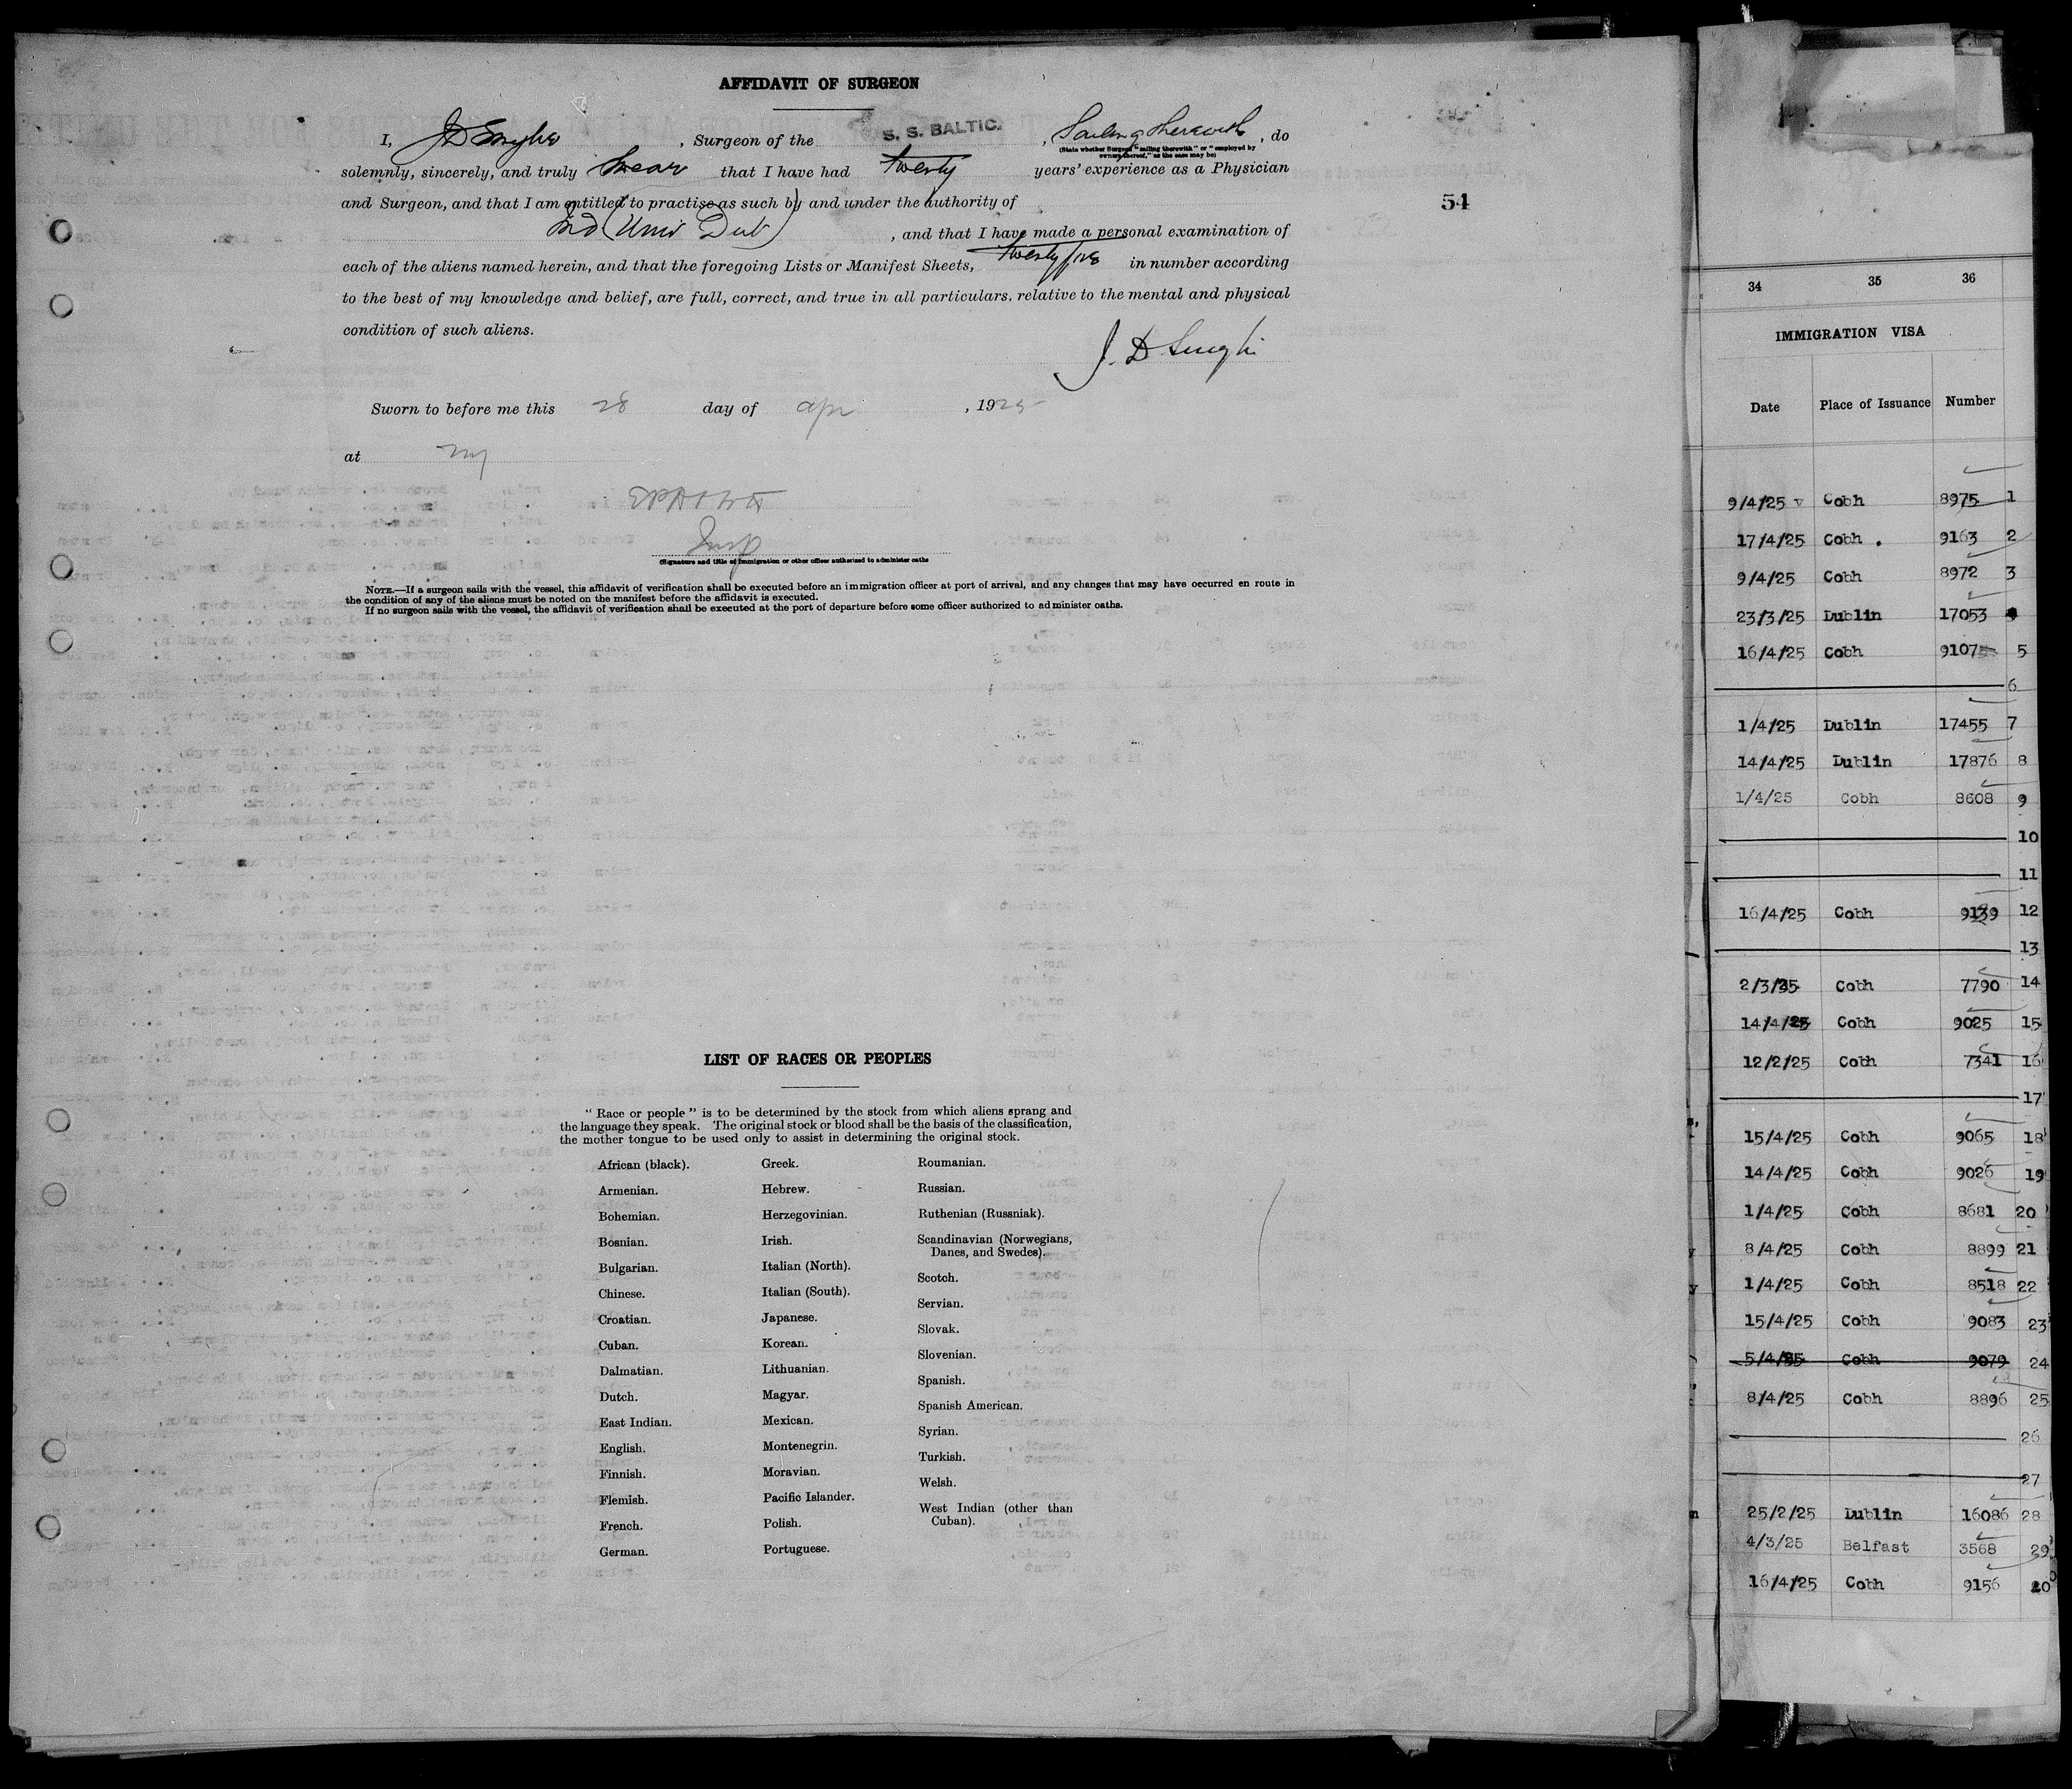 AFFIDAVIT OF SURGEON
I, , Surgeon of the S. S. BALTIC. , Sailing therewith , do
(State whether Surgeon "sailing therewith" or "employed by
owners thereof," as the case may be)
solemnly, sincerely, and truly swear that I have had twenty years' experience as a Physician
and Surgeon, and that I am entitled to practise as such by and under the authority of
Md (Univ Dub) , and that I have made a personal examination of
each of the aliens named herein, and that the foregoing Lists or Manifest Sheets, twenty five in number according
to the best of my knowledge and belief, are full, correct, and true in all particulars, relative to the mental and physical
condition of such aliens.
J. D.
Sworn to before me this 28 day of apr , 1925
at ny
Insp
(Signature and title of immigration or other officer authorized to administer oaths
NOTE.—If a surgeon sails with the vessel, this affidavit of verification shall be executed before an immigration officer at port of arrival, and any changes that may have occurred en route in
the condition of any of the aliens must be noted on the manifest before the affidavit is executed.
If no surgeon sails with the vessel, the affidavit of verification shall be executed at the port of departure before some officer authorized to administer oaths.
54
LIST OF RACES OR PEOPLES
"Race or people" is to be determined by the stock from which aliens sprang and
the language they speak. The original stock or blood shall be the basis of the classification,
the mother tongue to be used only to assist in determining the original stock.
African (black).
Armenian.
Bohemian.
Bosnian.
Bulgarian.
Chinese.
Croatian.
Cuban.
Dalmatian.
Dutch.
East Indian.
English.
Finnish.
Flemish.
French.
German.
Greek.
Hebrew.
Herzegovinian.
Irish.
Italian (North).
Italian (South).
Japanese.
Korean.
Lithuanian.
Magyar.
Mexican.
Montenegrin.
Moravian.
Pacific Islander.
Polish.
Portuguese.
Roumanian.
Russian.
Ruthenian (Russniak).
Scandinavian (Norwegians,
Danes, and Swedes).
Scotch.
Servian.
Slovak.
Slovenian.
Spanish.
Spanish American.
Syrian.
Turkish.
Welsh.
West Indian (other than
Cuban).
34 35 36
IMMIGRATION VISA
Date Place of Issuance Number
9/4/25 Cobh 8975 1
17/4/25 Cobh . 9163 2
9/4/25 Cobh 8972 3
23/3/25 Dublin 17053 4
16/4/25 Cobh 9107 5
6
1/4/25 Dublin 17455 7
14/4/25 Dublin 17876 8
1/4/25 Cobh 8608 9
10
11
16/4/25 Cobh 9139 12
13
2/3/25 Cobh 7790 14
14/4/25 Cobh 9025 15
12/2/25 Cobh 7341 16
17
15/4/25 Cobh 9065 18
14/4/25 Cobh 9026 19
1/4/25 Cobh 8681 20
8/4/25 Cobh 8899 21
1/4/25 Cobh 8518 22
15/4/25 Cobh 9083 23
5/4/25 Cobh 9079 24
8/4/25 Cobh 8896 25
26
27
25/2/25 Dublin 16086 28
4/3/25 Belfast 3568 29
16/4/25 Cobh 9156